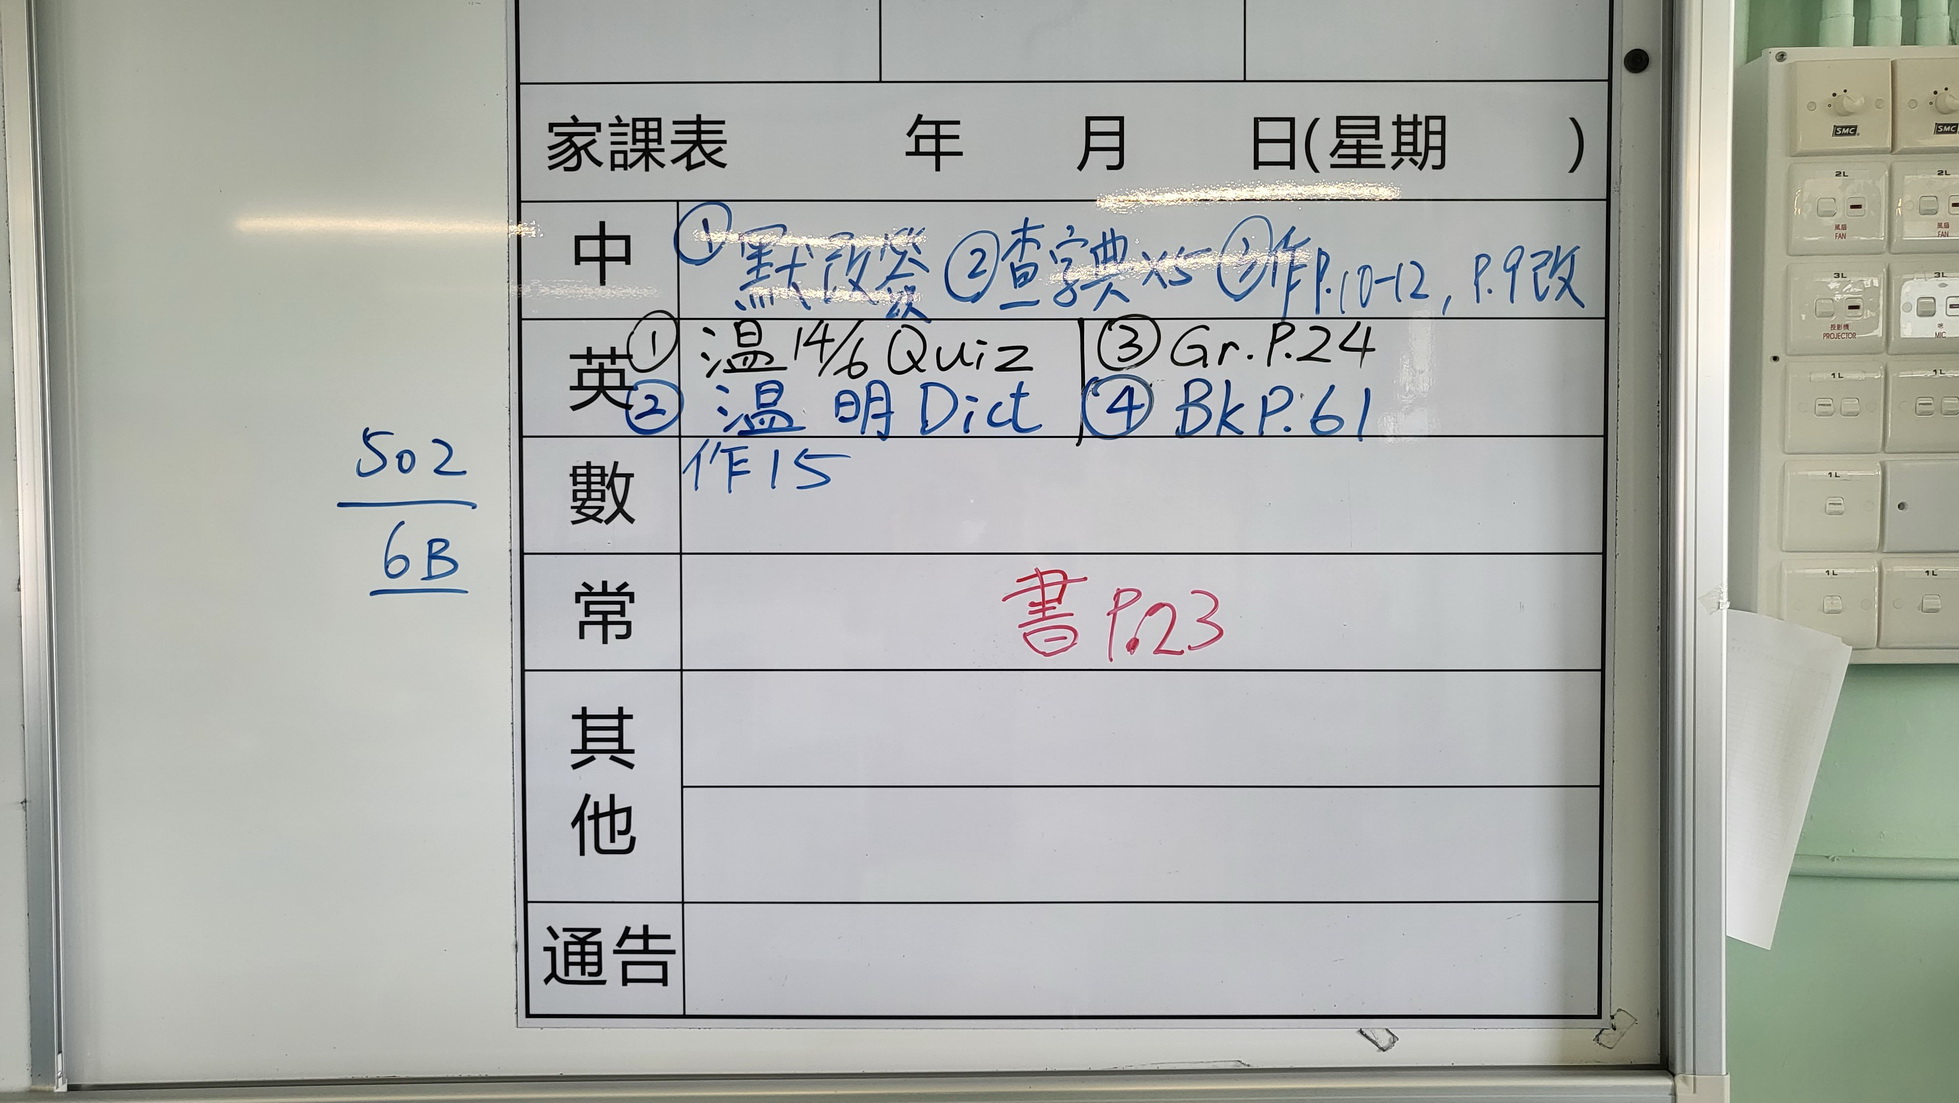 家課表 年 月 日(星期 )
中 ①默改簽 ②查字典x5 ③作P.10-12, P.9改
英 ①溫14/6 Quiz ③Gr.P.24
②溫 明Dict ④BkP.61
數 作15
常 書P.23
其他
通告
502
6B
SMC
SMC
2L
風扇
FAN
2L
風扇
FAN
3L
投影機
PROJECTOR
3L
MIC
1L
1L
1L
1L
1L